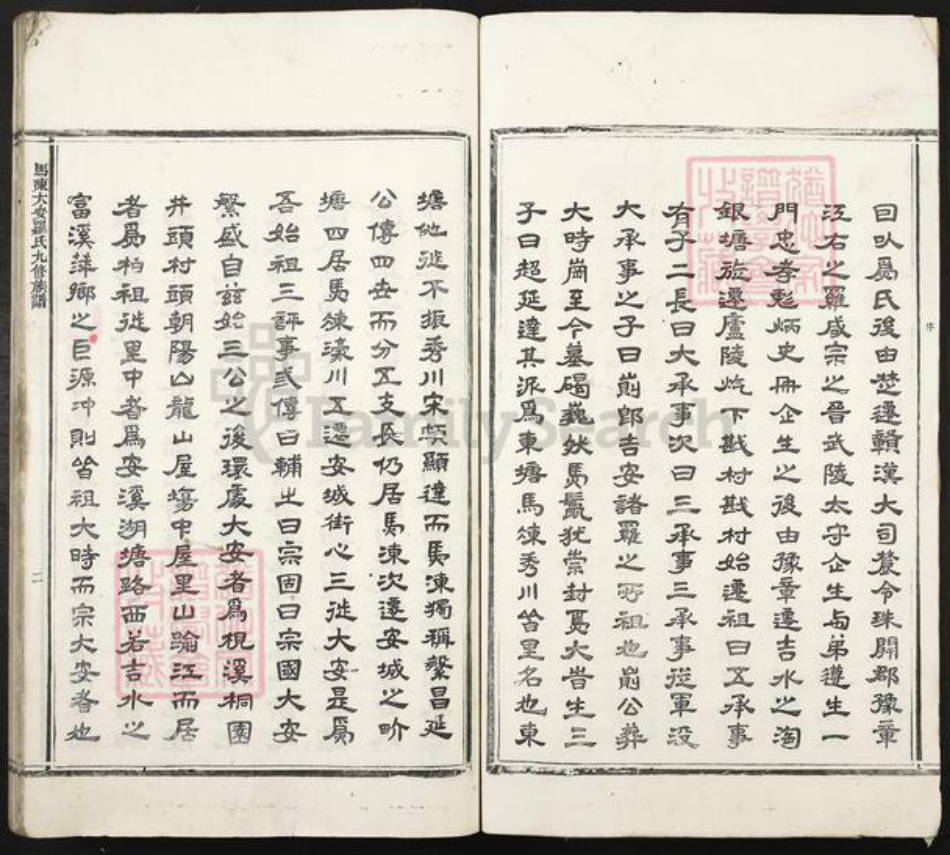 曰以爲氏後由楚遷贛漢大司農令珠開郡豫章
江右之羅咸宗之晉武陵太守企生与弟遵生一
門忠孝彪炳史冊企生之後由豫章遷吉水之淘
銀塘旋遷廬陵炉下戡村戡村始遷祖曰五承事
有子二長曰大承事次曰三承事三承事從軍没
大承事之子曰崱郎吉安諸羅之所祖也崱公葬
大時崗至今墓碣巍然馬鬣犹崇封焉大時生三
子曰超延達其派爲東塘馬溧秀川皆里名也東
塘他徙不振秀川宋頗顯達而馬溧獨稱繁昌延
公傳四世而分五支長仍居馬溧次遷安城之畍
塘四居馬溧濠川五遷安城街心三徙大安是爲
吾始祖三評事弍傳曰輔之曰宗固曰宗國大安
繁盛自兹始三公之後環處大安者爲梘溪桐園
井頭村頭朝陽山龍山屋塲中屋里山踰江而居
者爲柏祖徙里中者爲安溪湖塘路西若吉水之
富溪萍鄉之巨源冲則皆祖大時而宗大安者也
馬溧大安羅氏九修族譜
二
序
FamilySearch